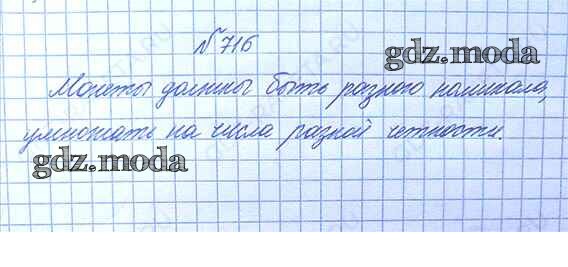 №716
gdz.moda
Монеты должны быть разного номинала,
умножать на числа разной четности.
gdz.moda